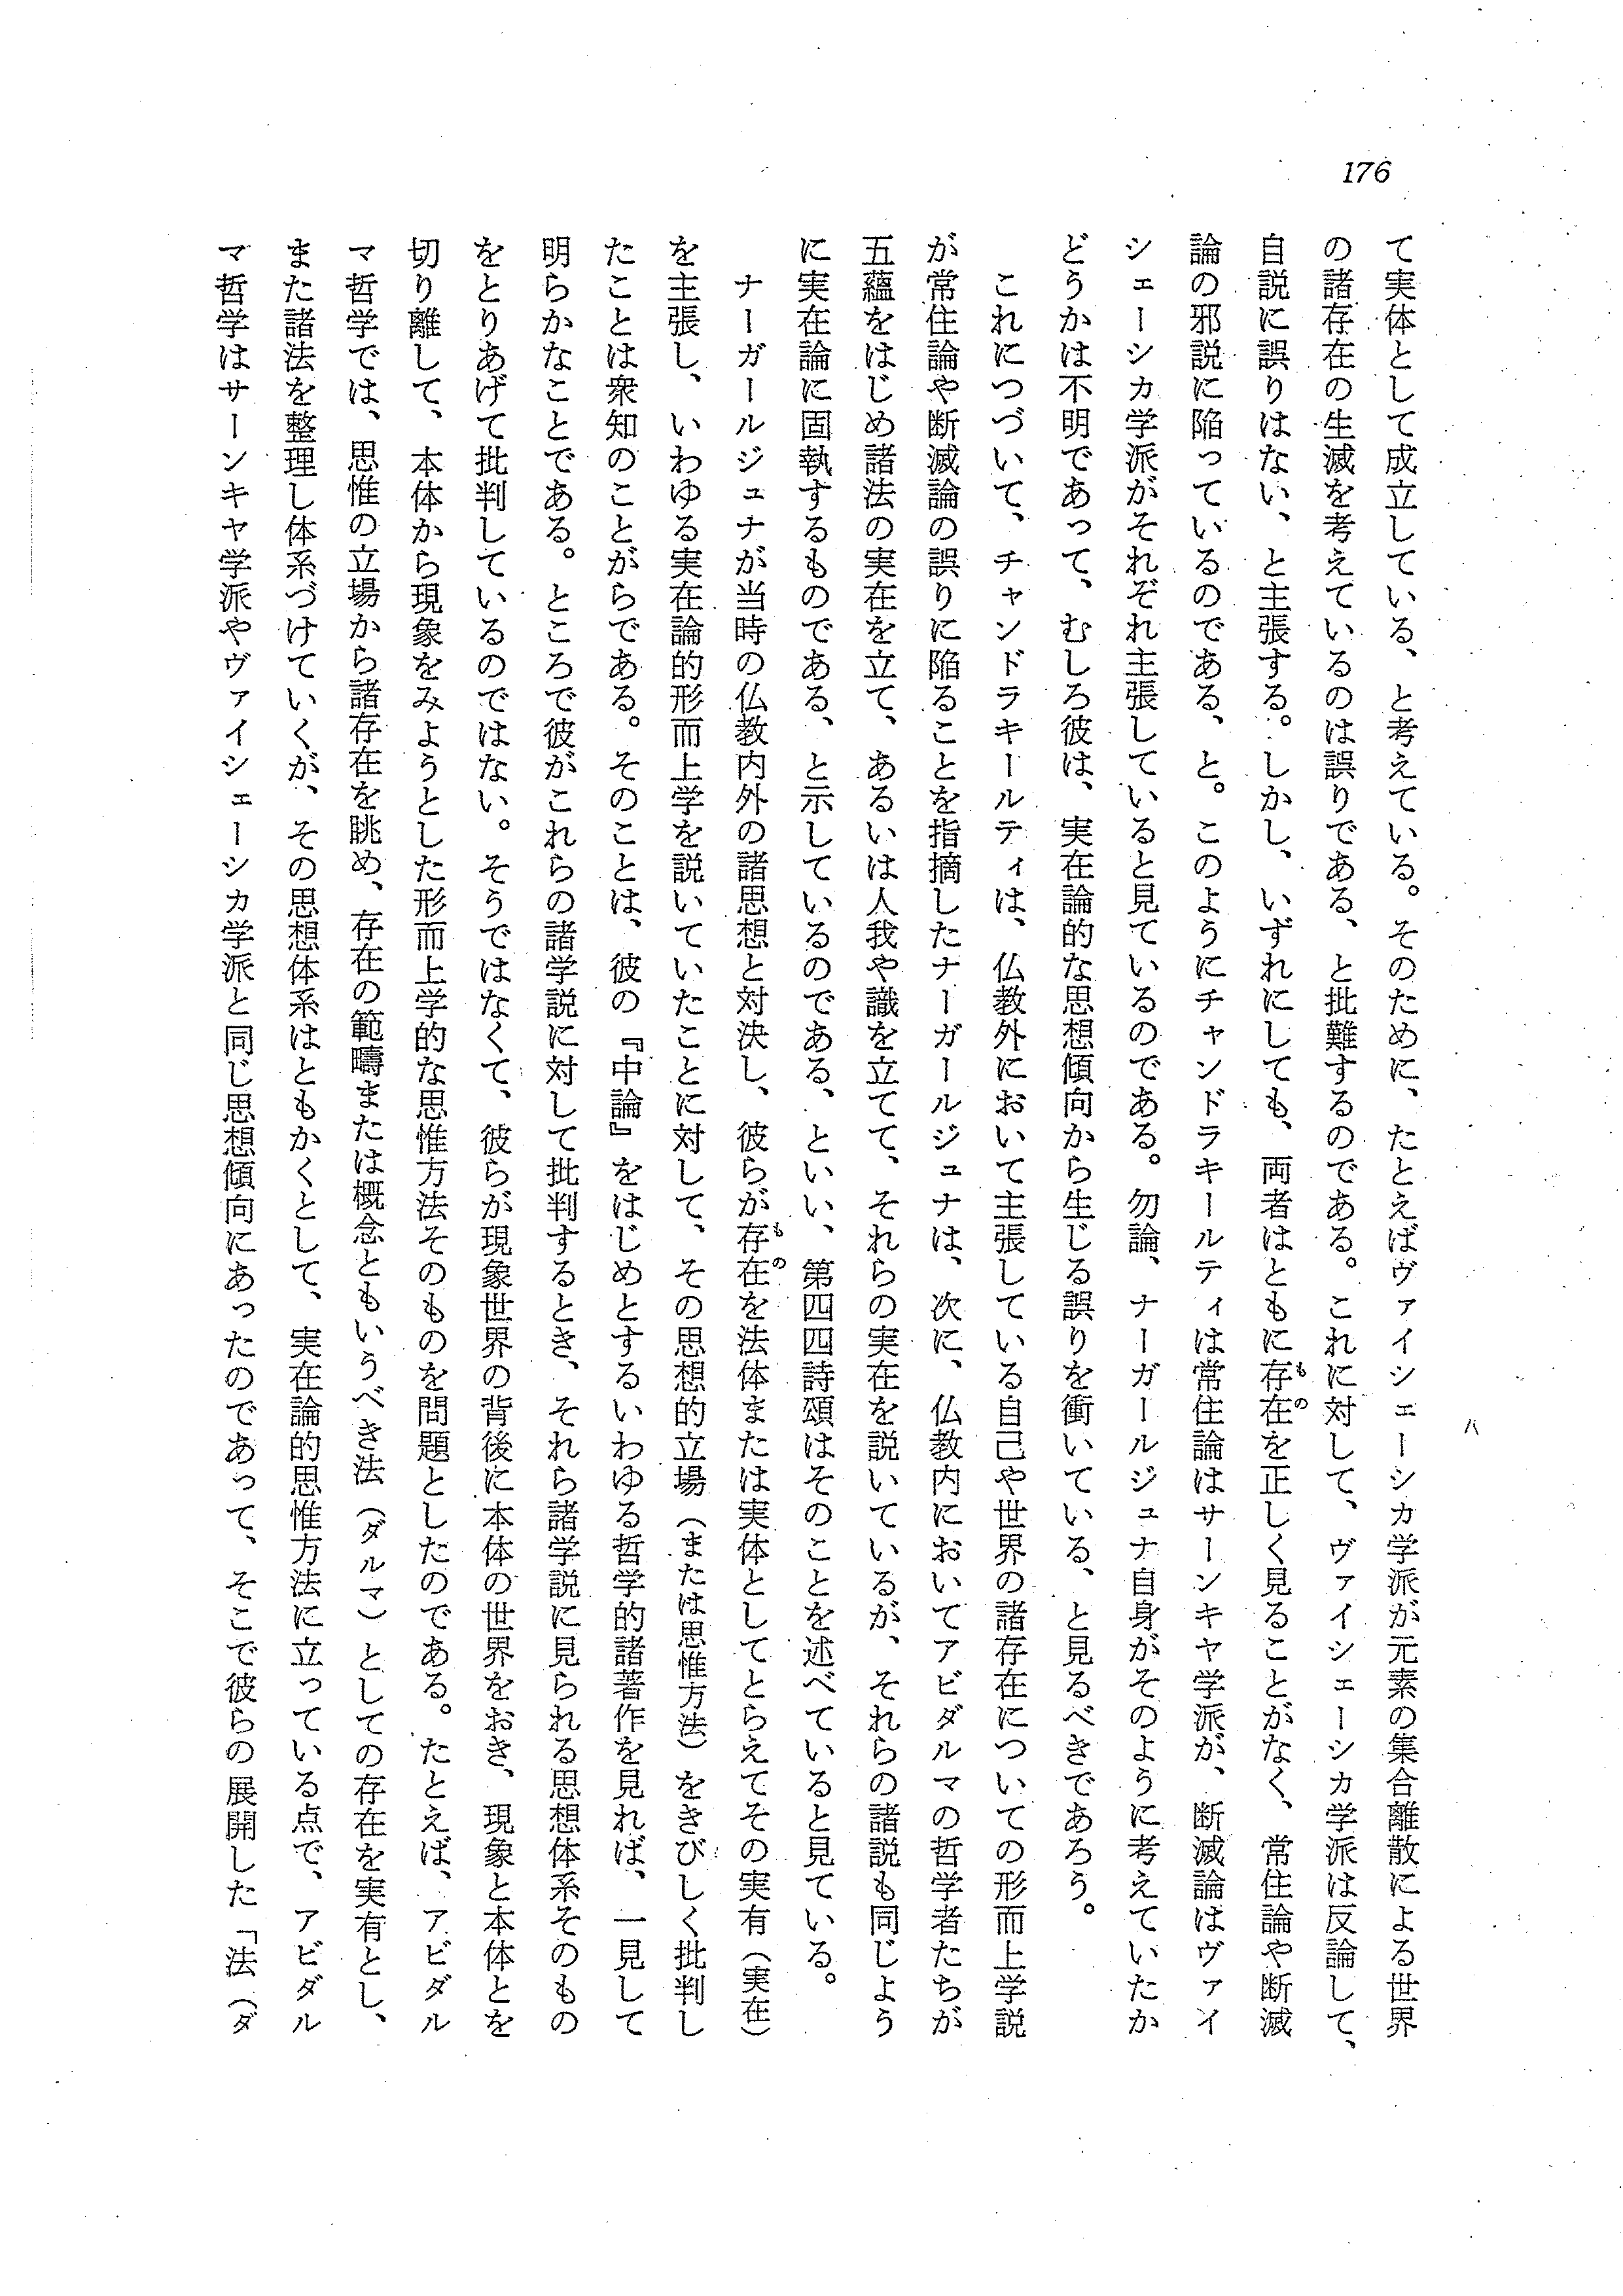 176
て実体として成立している、と考えている。そのために、たとえばヴァイシェーシカ学派が元素の集合離散による世界
の諸存在の生滅を考えているのは誤りである、と批難するのである。これに対して、ヴァイシェーシカ学派は反論して、
自説に誤りはない、と主張する。しかし、いずれにしても、両者はともに存在を正しく見ることがなく、常住論や断滅
論の邪説に陥っているのである、と。このようにチャンドラキールティは常住論はサーンキヤ学派が、断滅論はヴァイ
シェーシカ学派がそれぞれ主張していると見ているのである。勿論、ナーガールジュナ自身がそのように考えていたか
どうかは不明であって、むしろ彼は、実在論的な思想傾向から生じる誤りを衝いている、と見るべきであろう。
これにつづいて、チャンドラキールティは、仏教外において主張している自己や世界の諸存在についての形而上学説
が常住論や断滅論の誤りに陥ることを指摘したナーガールジュナは、次に、仏教内においてアビダルマの哲学者たちが
五蘊をはじめ諸法の実在を立て、あるいは人我や識を立てて、それらの実在を説いているが、それらの諸説も同じよう
に実在論に固執するものである、と示しているのである、といい、第四四詩頌はそのことを述べていると見ている。
ナーガールジュナが当時の仏教内外の諸思想と対決し、彼らが存在を法体または実体としてとらえてその実有（実在）
を主張し、いわゆる実在論的形而上学を説いていたことに対して、その思想的立場（または思惟方法）をきびしく批判し
たことは衆知のことがらである。そのことは、彼の『中論』をはじめとするいわゆる哲学的諸著作を見れば、一見して
明らかなことである。ところで彼がこれらの諸学説に対して批判するとき、それら諸学説に見られる思想体系そのもの
をとりあげて批判しているのではない。そうではなくて、彼らが現象世界の背後に本体の世界をおき、現象と本体とを
切り離して、本体から現象をみようとした形而上学的な思惟方法そのものを問題としたのである。たとえば、アビダル
マ哲学では、思惟の立場から諸存在を眺め、存在の範疇または概念ともいうべき法（ダルマ）としての存在を実有とし、
また諸法を整理し体系づけていくが、その思想体系はともかくとして、実在論的思惟方法に立っている点で、アビダル
マ哲学はサーンキヤ学派やヴァイシェーシカ学派と同じ思想傾向にあったのであって、そこで彼らの展開した「法（ダ